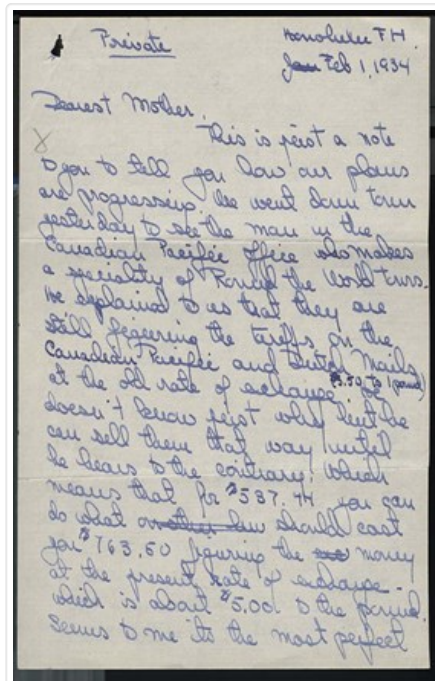 Private
Honolulu T.H.
Jan Feb 1, 1934
Dearest Mother,
This is just a note
to you to tell you how our plans
are progressing. We went down town
yesterday to see the man in the
Canadian Pacific office who makes
a speciality of Round the World tours.
He explained to us that they are
still figuering the tariffs on the
Canadian Pacific and Dutch Mails
at the old rate of exchange. He
($3.50 to 1 pound)
doesn't know just why but he
can sell them that way until
he hears to the contrary. Which
means that for $537.74 you can
do what should cost
you $763.50 figuring the money
at the present rate of exchange -
which is about $5.00 to the pound.
Seems to me its the most perfect